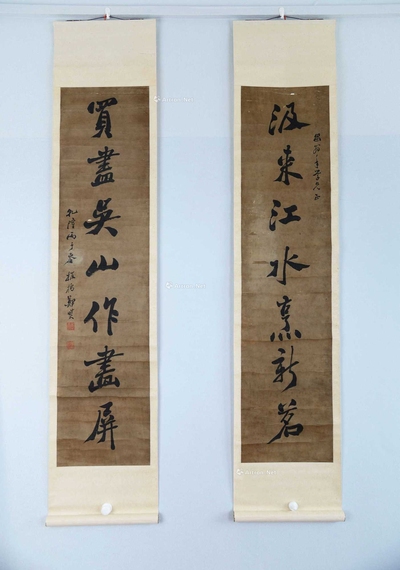 汲來江水烹新茗
買盡吳山作畫屏
乾隆丙子春板橋鄭燮